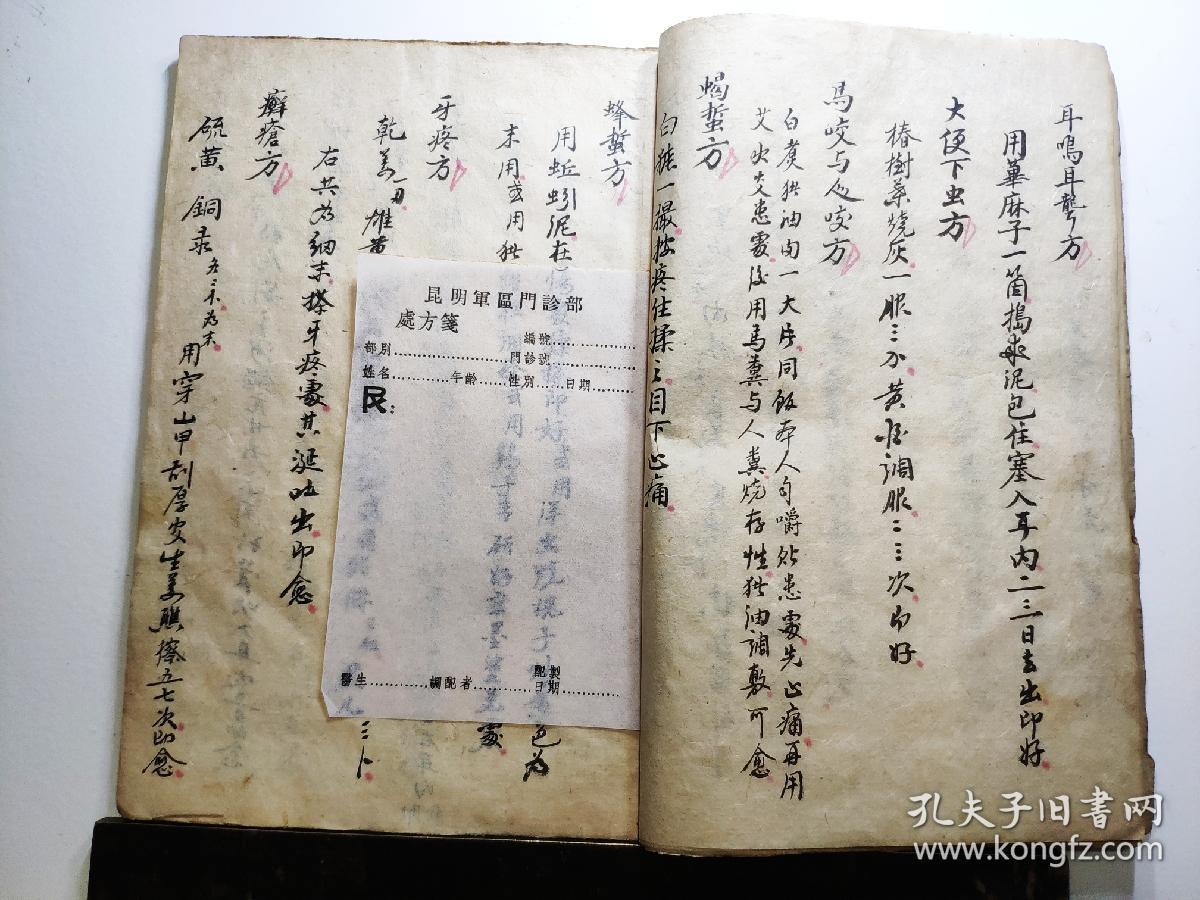 耳鳴耳聾方
用萆麻子一箇搗爛泥包住塞入耳内二三日去出即好
大便下虫方
椿樹葉燒灰一服三分黄酒調服二三次即好
馬咬与人咬方
油肉一大片同飯本人自嚼貼患處先止痛再用
艾火灸患處後用馬糞与人糞燒存性猪油調敷可愈
蝎蜇方
白礬一撮按疼住揉之目下止痛
蜂蜇方
用蚯蚓泥在
末用或用
色为
處
牙疼方
乾姜一刃雄黄
右共为細末搽牙疼處其涎吐出即愈
癬瘡方
硫黄 銅彔各二分为末 用穿山甲刮厚皮生姜醮擦五七次即愈
昆明軍區門診部
處方箋
編號
部別
門診號
姓名 年齡 性別 日期
醫生 調配者 配製日期
孔夫子旧書网
www.kongfz.com